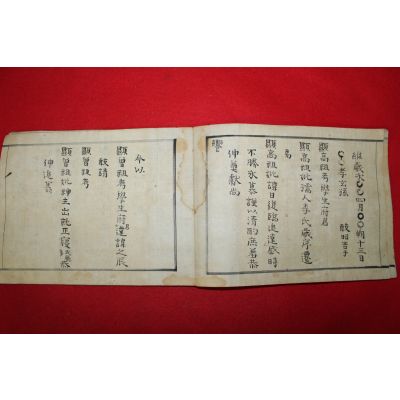 維歲次〇〇四月〇〇朔十三日
〇〇孝玄孫 敢昭告于
顯高祖考學生府君
顯高祖妣孺人李氏歲序遷
易
顯高祖妣諱日復臨追遠感時
不勝永慕謹以清酌庶羞恭
伸奠獻尚
饗
今以
顯曾祖考學生府君遠諱之辰
敢請
顯曾祖考
顯曾祖妣神主出就正寢恭
伸追慕